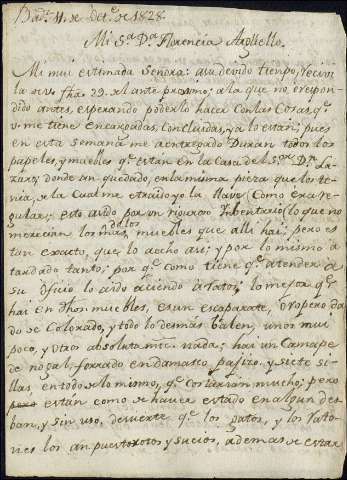 Bad.z 11. de Oct.e de 1828.
Mi S.a D.a Florencia Arguello.
Mi mui estimada Señora: a su devido tiempo, recivi
la su fha. 29. del ante proximo; a la que no e respon-
dido antes, esperando poderlo hacer con las Cosas q.e
v. me tiene encargadas, concluidas, y a lo estan; pues
en esta semana me a entregado Duran todos los
papeles, y muebles q.e estan en la Casa del S.or D.n La-
zaro; donde an quedado, en la misma pieza que los te-
nia, de la cual me e traido yo la llave; Como era re-
gular; esto a sido por un riguroso Inbentario, lo que no
merecian los mas de los muebles que alli hai; pero es
tan exacto, que lo a echo asi; y por lo mismo a
tardado tanto; por q.e como tiene q.e atender a
su Oficio lo a ido aciendo a ratos; lo mejor q.e
hai en dhos muebles, es un escaparate, o ropero da-
do de Colorado, y todo lo demas balen, unos mui
poco, y otros absoluta mte. nada; hai un Camape
de nogal, forrado en damasco pajizo, y siete si-
llas, en todo de lo mismo, q.e costarian mucho; pero
estan como de haver estado en algun des-
ban, y sin uso, de suerte q.e los gatos, y los rato-
nes los an puesto rotos y sucios, ademas de estar